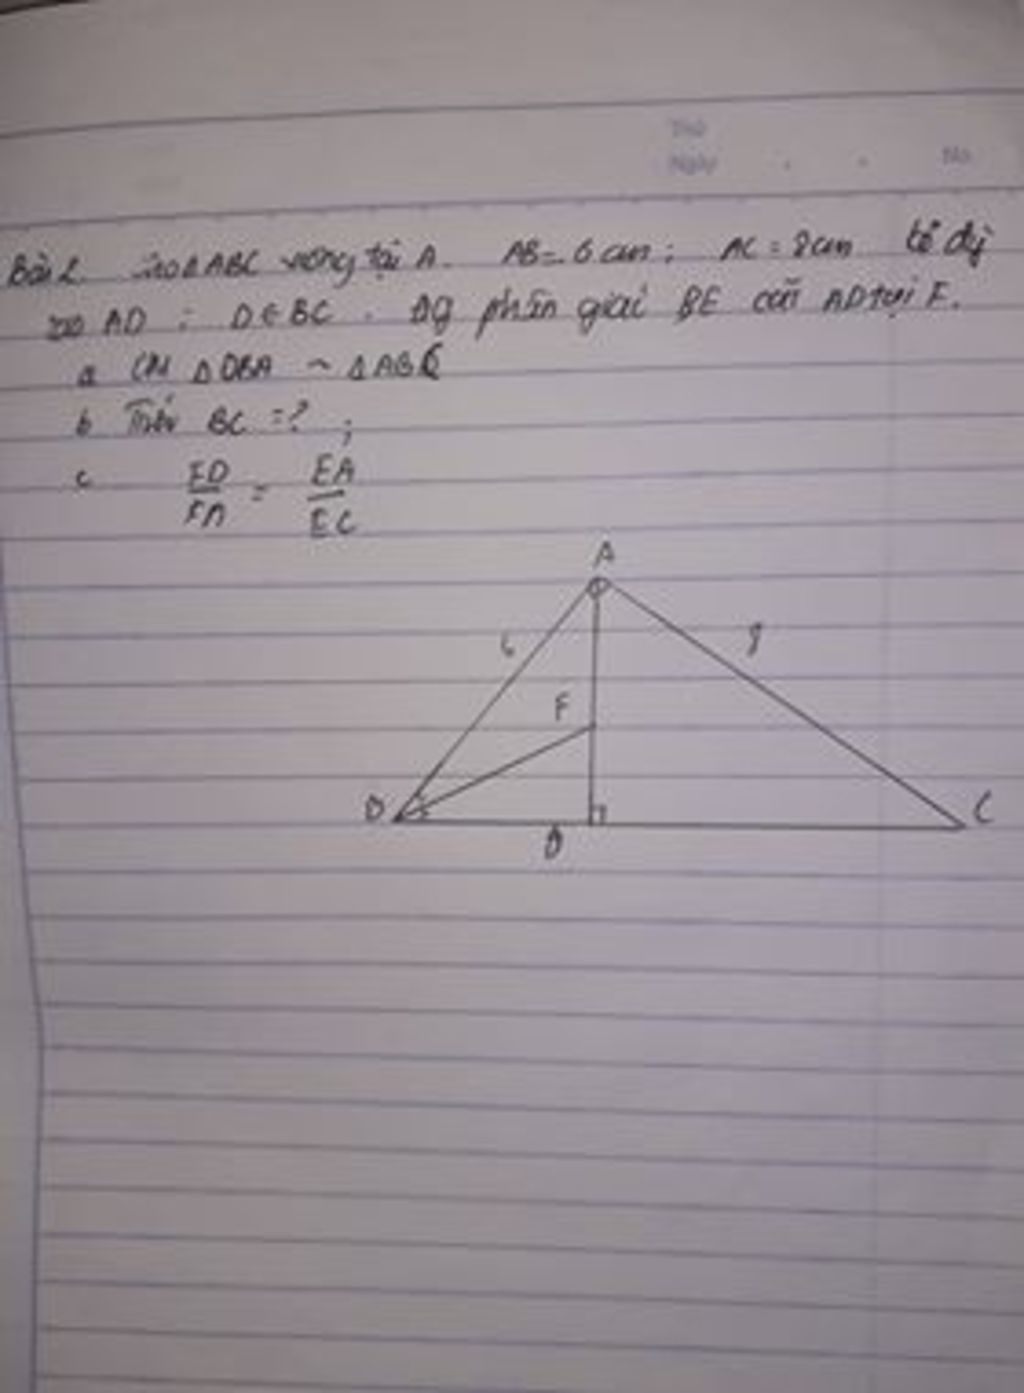 Thứ
Ngày . . No.
Bài 2. Cho ΔABC vuông tại A. AB = 6 cm ; AC = 8 cm kẻ đg
cao AD ; D ∈ BC . Đg phân giác BE cắt AD tại F.
a CM ΔDBA ~ ΔABC
b Tính BC = ? ;
c FD/FA = EA/EC
A
6 8
F
B C
D